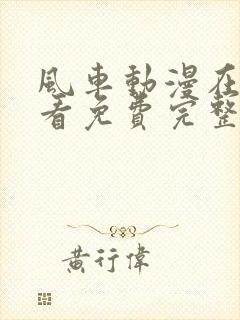 風車動漫在
看免費完整
黃行偉